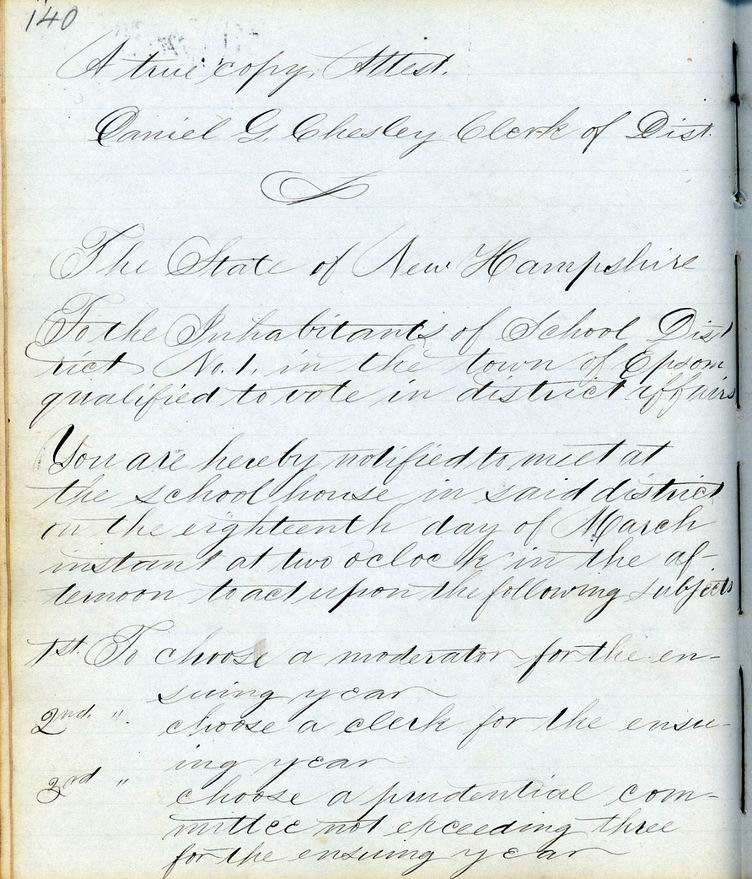 140
A true copy, Attest.
Daniel G Chesley Clerk of Dist.
The State of New Hampshire
To the Inhabitants of School Dist
rict No. 1. in the town of Epsom
qualified to vote in district affairs
You are hereby notified to meet at
the school house in said district
on the eighteenth day of March
instant at two oclock in the af-
ternoon to act upon the following subjects
1st. To choose a moderator for the en-
suing year
2nd. ". choose a clerk for the ensu-
ing year
3rd " choose a prudential com-
mittee not exceeding three
for the ensuing year